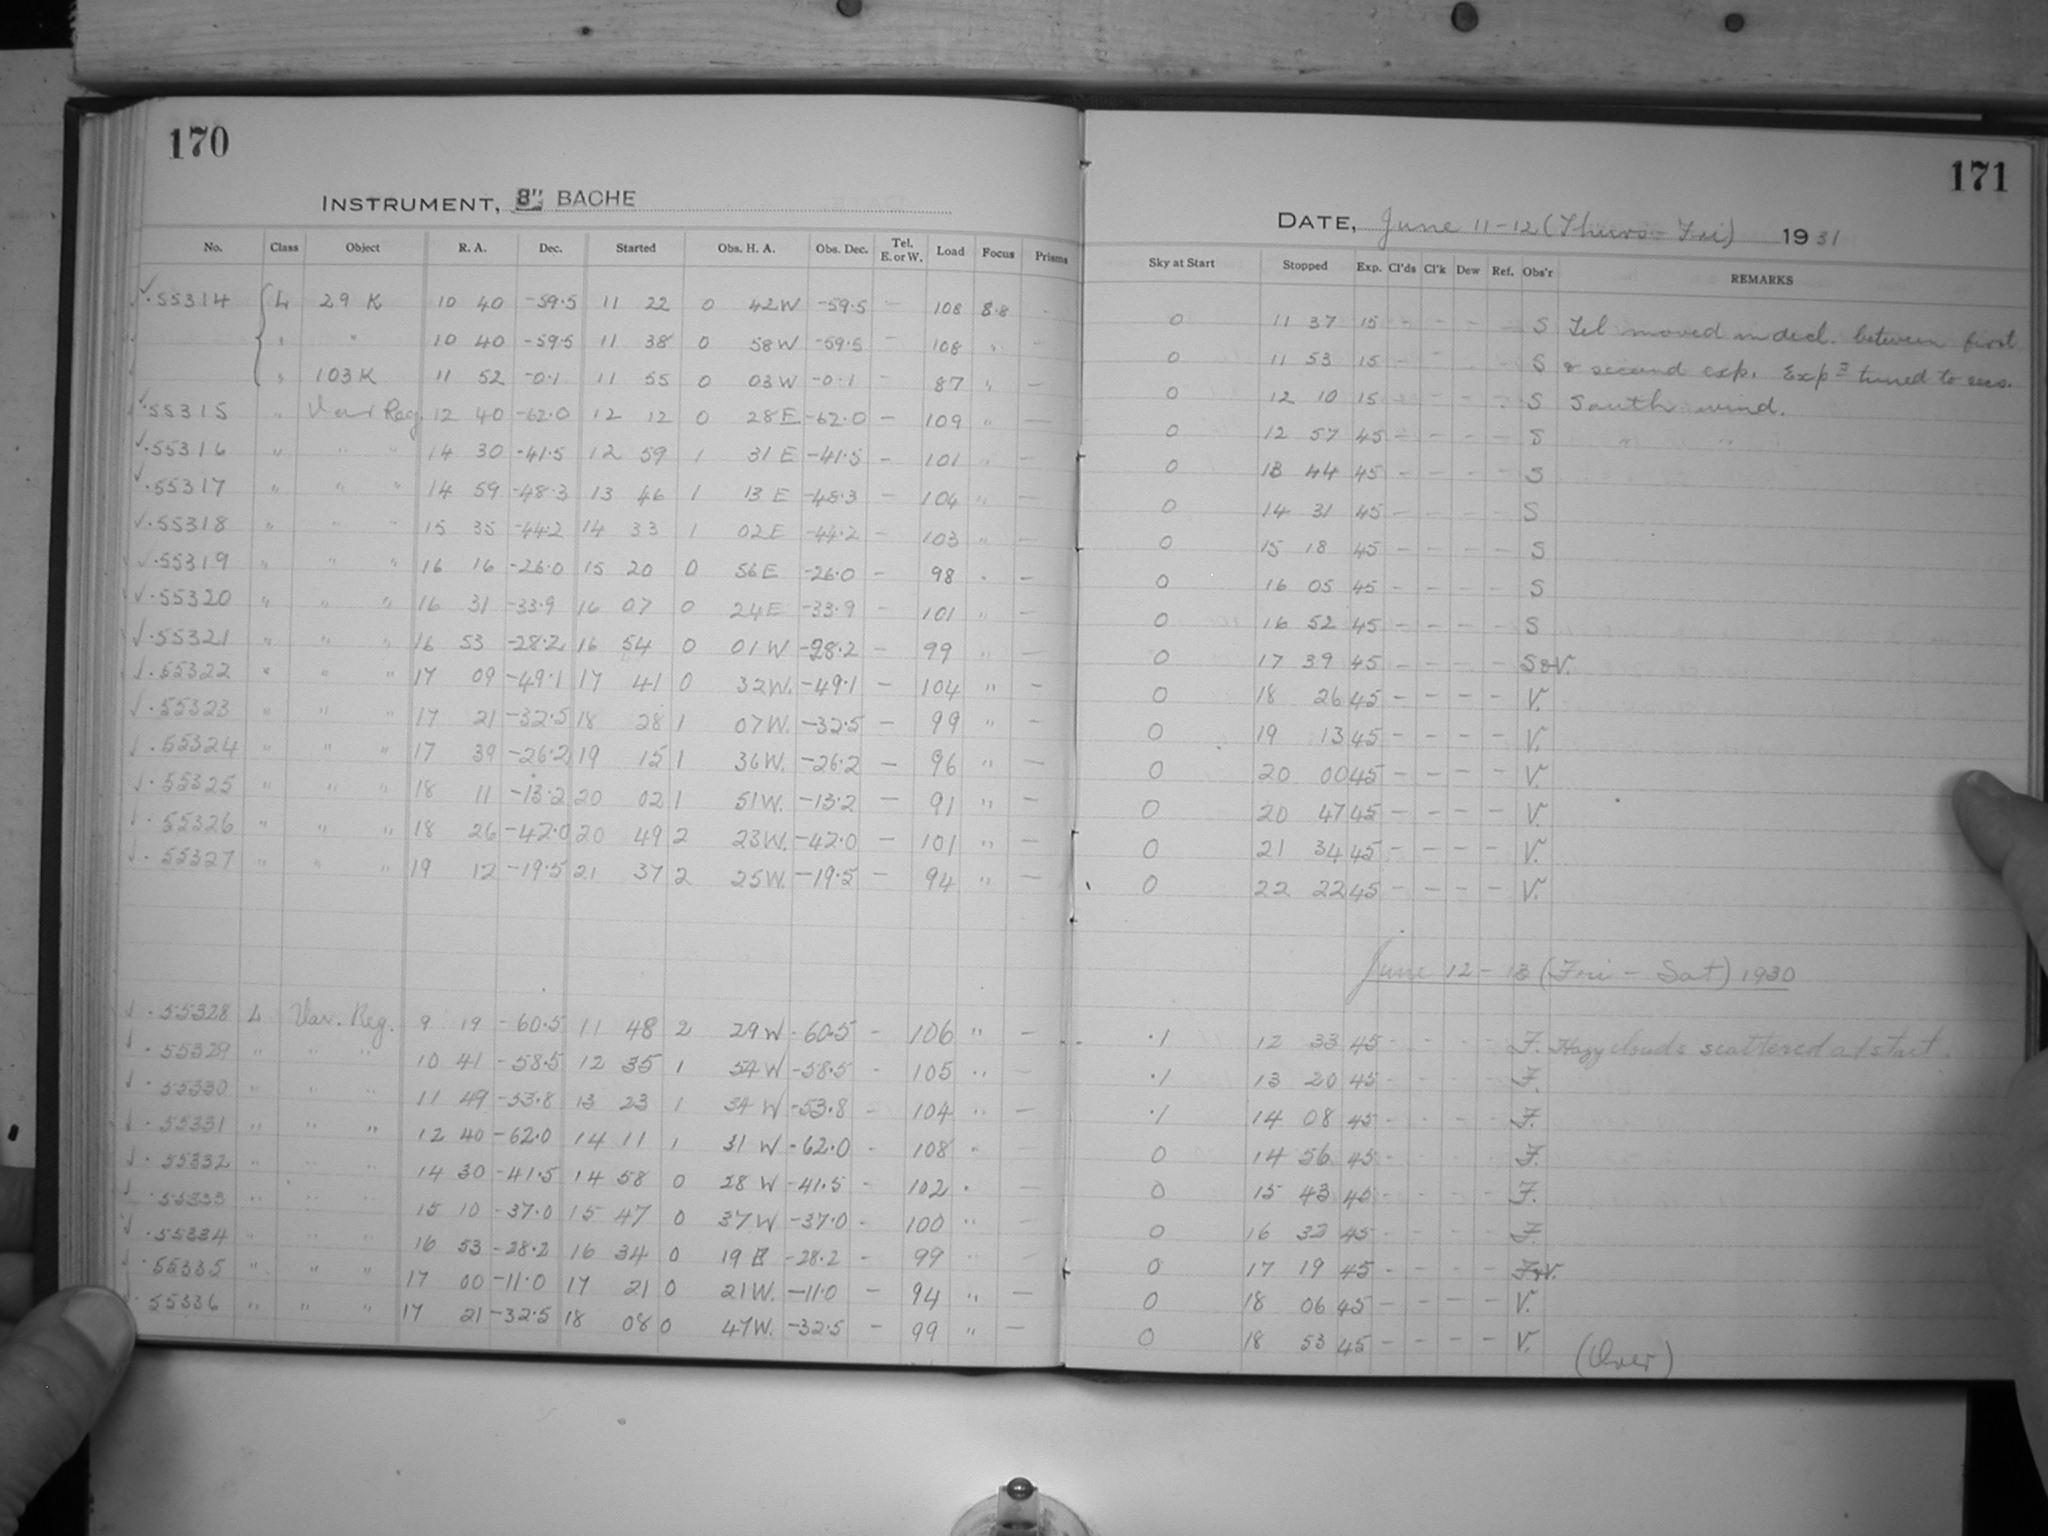 170
INSTRUMENT, 8" BACHE
No. Class Object R. A. Dec. Started Obs. H. A. Obs. Dec. Tel. E. or W. Load Focus Prisms
√.55314 L 29 K 10 40 -59.5 11 22 0 42W -59.5 - 108 8.8
" " 10 40 -59.5 11 38 0 58W -59.5 - 108 " -
" 103K 11 52 -0.1 11 55 0 03W -0.1 - 87 " -
√.55315 " Var Reg. 12 40 -62.0 12 12 0 28E -62.0 - 109 " -
√.55316 " " " 14 30 -41.5 12 59 1 31E -41.5 - 101 " -
√.55317 " " " 14 59 -48.3 13 46 1 13E -48.3 - 104 " -
√.55318 " " " 15 35 -44.2 14 33 1 02E -44.2 - 103 " -
√.55319 " " " 16 16 -26.0 15 20 0 56E -26.0 - 98 " -
√.55320 " " " 16 31 -33.9 16 07 0 24E -33.9 - 101 " -
√.55321 " " " 16 53 -28.2 16 54 0 01W -28.2 - 99 " -
√.55322 " " " 17 09 -49.1 17 41 0 32W. -49.1 - 104 " -
√.55323 " " " 17 21 -32.5 18 28 1 07W. -32.5 - 99 " -
√.55324 " " " 17 39 -26.2 19 15 1 36W. -26.2 - 96 " -
√.55325 " " " 18 11 -13.2 20 02 1 51W. -13.2 - 91 " -
√.55326 " " " 18 26 -42.0 20 49 2 23W. -42.0 - 101 " -
√.55327 " " " 19 12 -19.5 21 37 2 25W. -19.5 - 94 " -
√.55328 L Var. Reg. 9 19 -60.5 11 48 2 29W -60.5 - 106 " -
√.55329 " " " 10 41 -58.5 12 35 1 54W -58.5 - 105 " -
√.55330 " " " 11 49 -53.8 13 23 1 34W -53.8 - 104 " -
√.55331 " " " 12 40 -62.0 14 11 1 31W -62.0 - 108 " -
√.55332 " " " 14 30 -41.5 14 58 0 28W -41.5 - 102 " -
√.55333 " " " 15 10 -37.0 15 47 0 37W -37.0 - 100 " -
√.55334 " " " 16 53 -28.2 16 34 0 19E -28.2 - 99 " -
√.55335 " " " 17 00 -11.0 17 21 0 21W. -11.0 - 94 " -
√.55336 " " " 17 21 -32.5 18 08 0 47W. -32.5 - 99 " -
171
DATE, June 11-12 (Thurs-Fri) 1931
Sky at Start Stopped Exp. Cl'ds Cl'k Dew Ref. Obs'r REMARKS
0 11 37 15 - - - - S Tel moved in decl. between first
0 11 53 15 - - - - S & second exp. turned to
0 12 10 15 - - - - S South wind.
0 12 57 45 - - - - S " "
0 13 44 45 - - - - S
0 14 31 45 - - - - S
0 15 18 45 - - - - S
0 16 05 45 - - - - S
0 16 52 45 - - - - S
0 17 39 45 - - - - S&V.
0 18 26 45 - - - - V.
0 19 13 45 - - - - V.
0 20 00 45 - - - - V.
0 20 47 45 - - - - V.
0 21 34 45 - - - - V.
0 22 22 45 - - - - V.
June 12-13 (Fri-Sat) 1930
.1 12 33 45 - - - - F. Hazy clouds scattered at start.
.1 13 20 45 - - - - F.
.1 14 08 45 - - - - F.
0 14 56 45 - - - - F.
0 15 43 45 - - - - F.
0 16 32 45 - - - - F.
0 17 19 45 - - - - F&V.
0 18 06 45 - - - - V.
0 18 53 45 - - - - V.
(Over)